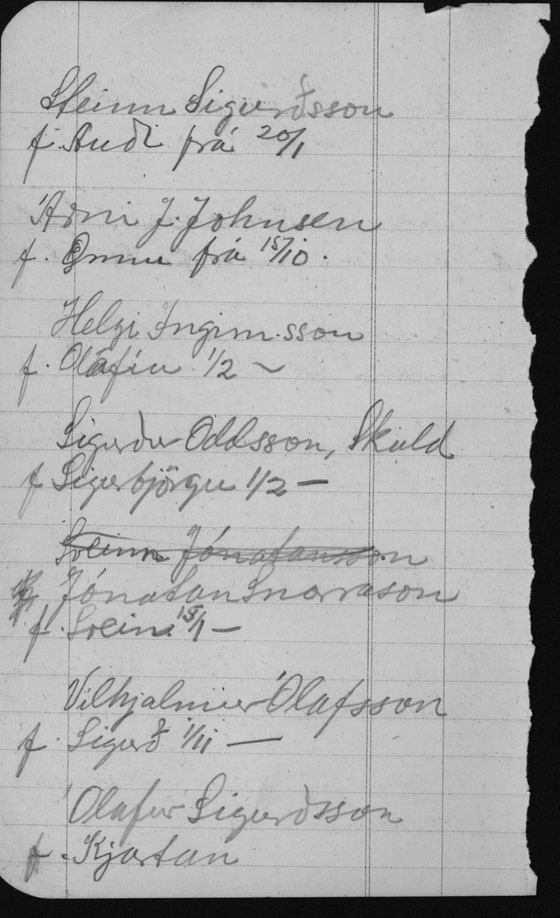 Steinn Sigurðsson
f. Auði frá 20/1
Árni J. Johnsen
f. Önnu frá 15/10.
Helgi Ingim.sson
f. Ólafíu 1/2 ~
Sigurður Oddsson, Skuld
f Sigurbjörgu 1/2 —
Sveinn Jónatansson
Jónatan Snorrason
f. Svein 15/1 —
Vilhjalmur Ólafsson
f. Sigurð 1/11 —
Ólafur Sigurðsson
f. Kjartan